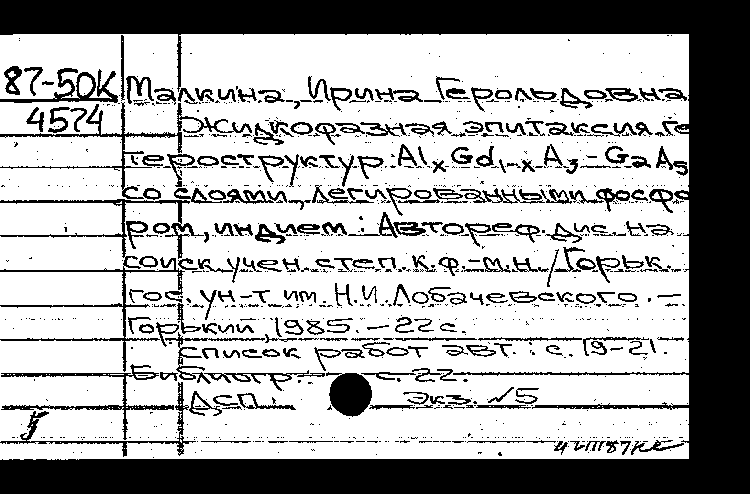 87-50К Малкина, Ирина Герольдовна
4574 Жидкофазная эпитаксия ге
тероструктур: AlxGd1-xA3-GaAs
со слоями, легированными фосфо
ром, индием: Автореф. дис. на
соиск. учен. степ. к.ф.-м.н. / Горьк.
гос. ун-т им. Н.И. Лобачевского. –
Горький, 1985. – 22 с.
Список работ авт.: с. 19-21.
Библиогр.: с. 22.
ДСП. Экз. №5